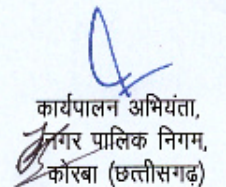 कार्यपालन अभियंता,
नगर पालिक निगम,
कोरबा (छत्तीसगढ़)